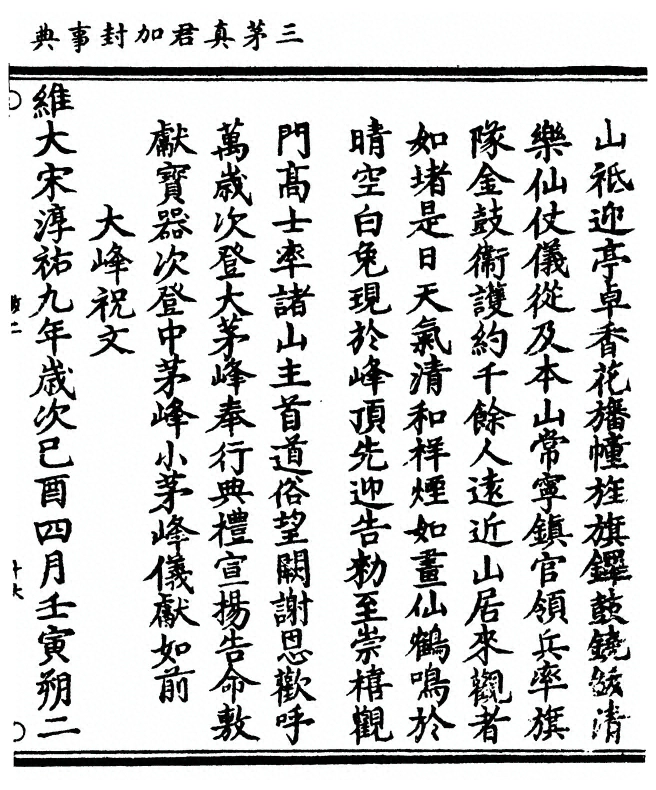 三茅真君加封事典
山祇迎亭卓香花旛幢旌旗鐸鼓鐃鈸清
樂仙仗儀從及本山常寧鎮官領兵率旗
隊金鼓衛護約千餘人遠近山居來觀者
如堵是日天氣清和祥煙如畫仙鶴鳴於
晴空白兔現於峰頂先迎告勑至崇禧觀
門高士率諸山主首道俗望闕謝恩歡呼
萬歲次登大茅峰奉行典禮宣揚告命敷
獻寶器次登中茅峰小茅峰儀獻如前
大峰祝文
維大宋淳祐九年歲次己酉四月壬寅朔二